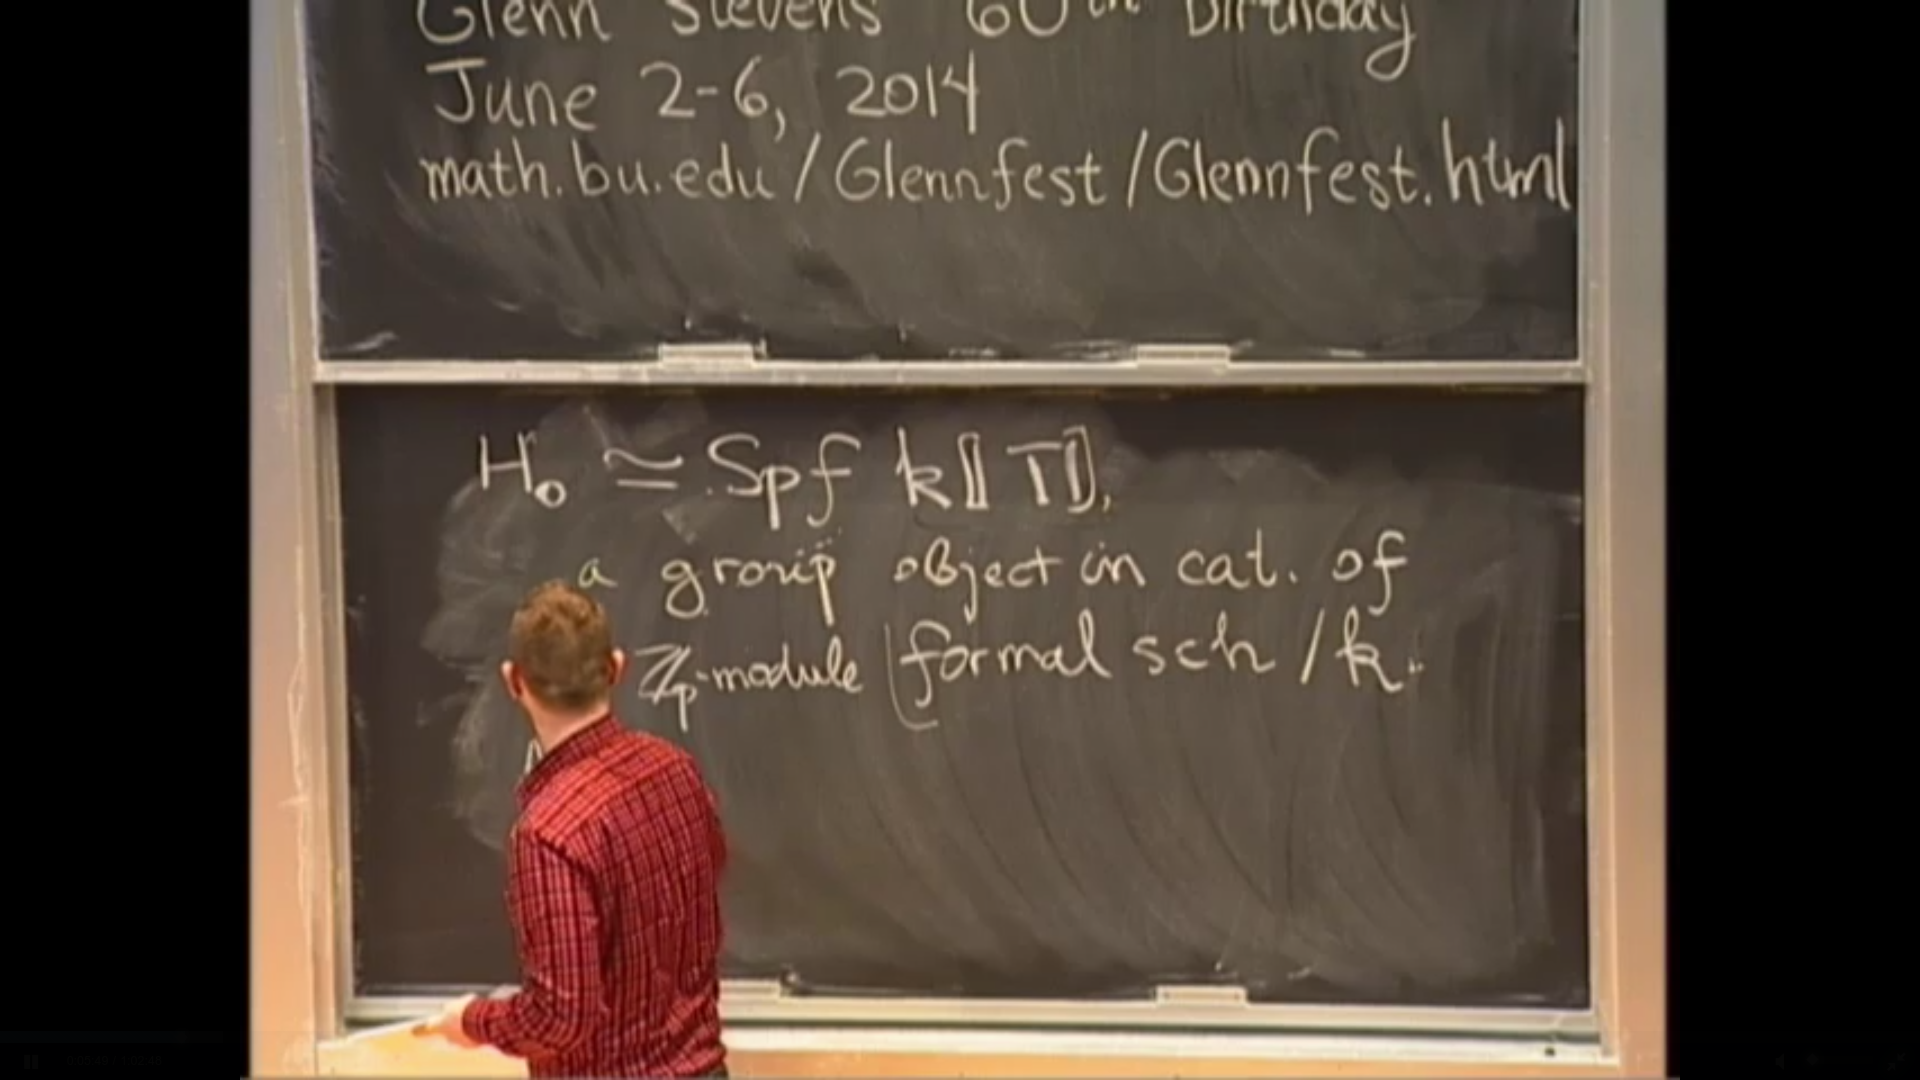 Glenn Stevens 60th Birthday
June 2-6, 2014
math.bu.edu/Glennfest/Glennfest.html
H₀ ≃ Spf k⟦T⟧,
a group object in cat. of
ℤp-module formal sch /k.